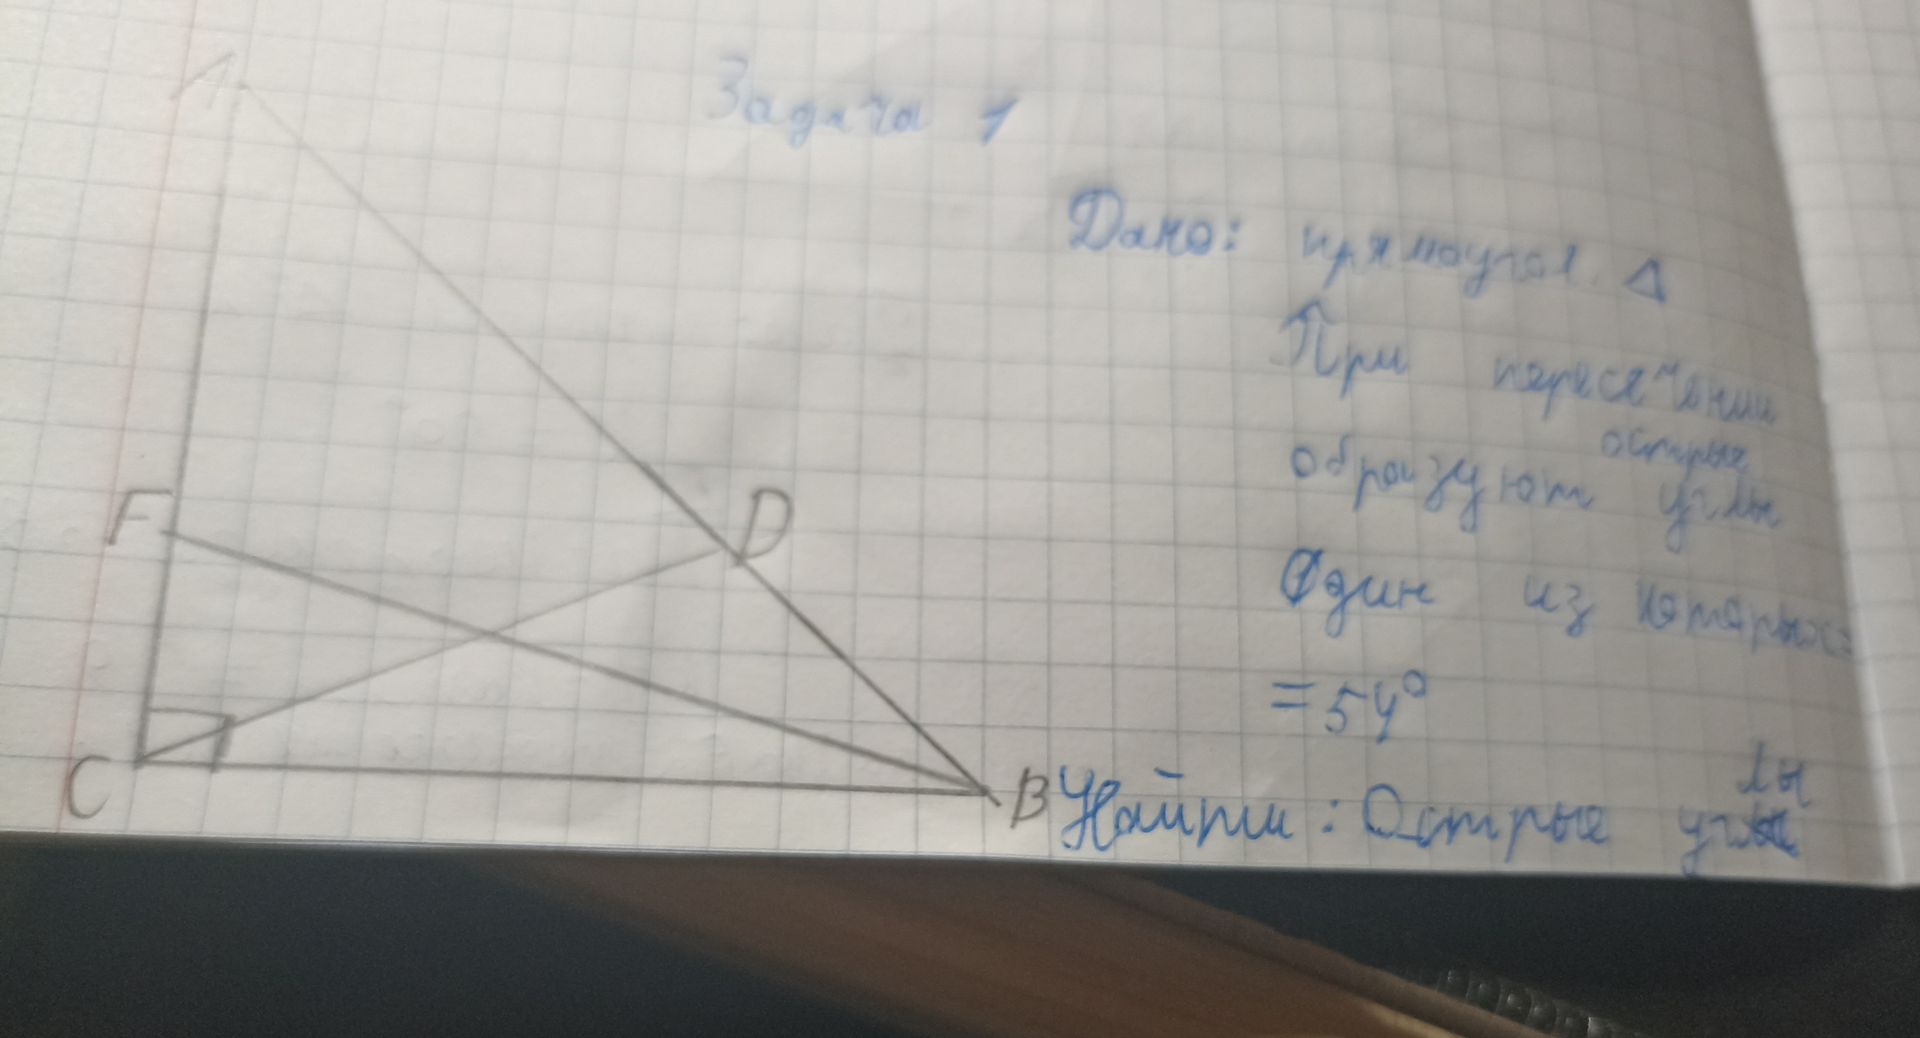 Задача 1
A
Дано: прямоугол. Δ
При пересечении
образуют острые углы
Один из которых
= 54°
Найти: Острые углы
F
D
C
B